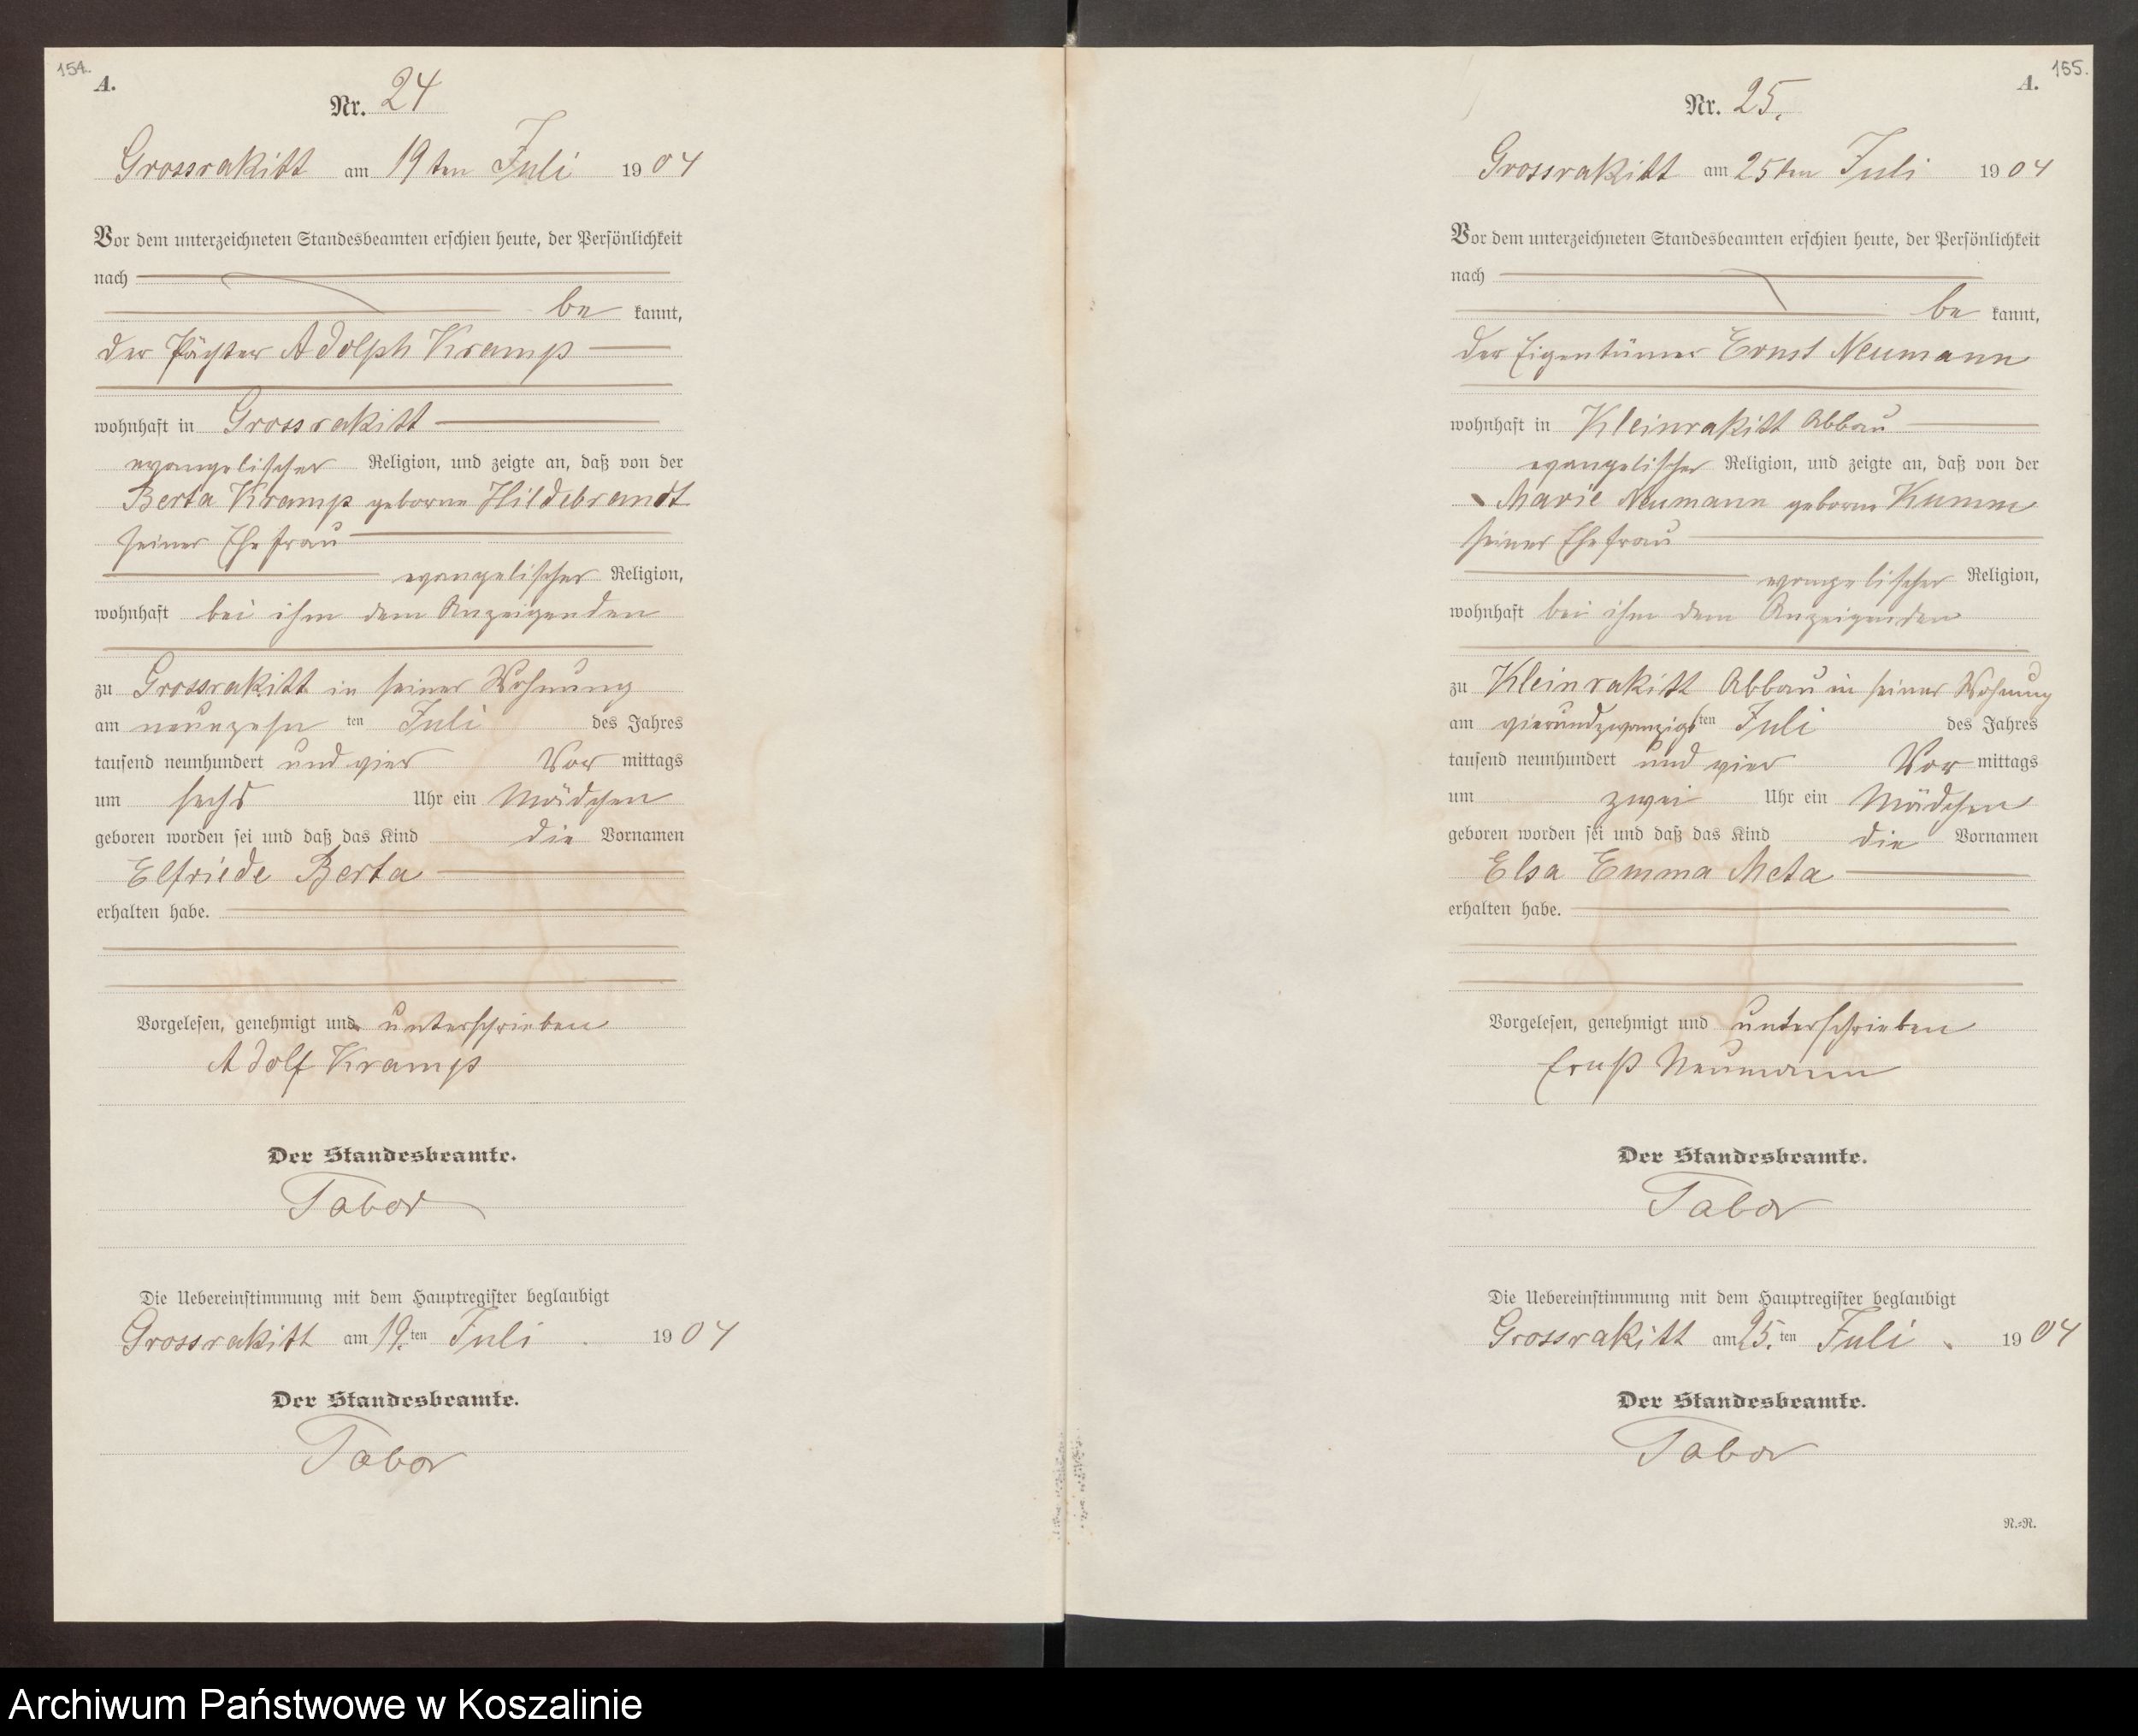 154.
A.
Nr. 24
Grossrakitt am 19ten Juli 1904
Vor dem unterzeichneten Standesbeamten erschien heute, der Persönlichkeit
nach
be kannt,
der Pächter Adolph Kramp
wohnhaft in Grossrakitt
evangelischer Religion, und zeigte an, daß von der
Berta Kramp geborne Hildebrandt
seiner Ehefrau
evangelischer Religion,
wohnhaft bei ihm dem Anzeigenden
zu Grossrakitt in seiner Wohnung
am neunzehn ten Juli des Jahres
tausend neunhundert und vier Vor mittags
um sechs Uhr ein Mädchen
geboren worden sei und daß das Kind die Vornamen
Elfriede Berta
erhalten habe.
Vorgelesen, genehmigt und unterschrieben
Adolf Kramp
Der Standesbeamte.
Tabor
Die Uebereinstimmung mit dem Hauptregister beglaubigt
Grossrakitt am 19. ten Juli 1904
Der Standesbeamte.
Tabor
155.
A.
Nr. 25.
Grossrakitt am 25ten Juli 1904
Vor dem unterzeichneten Standesbeamten erschien heute, der Persönlichkeit
nach
be kannt,
der Eigentümer Ernst Neumann
wohnhaft in Kleinrakitt Abbau
evangelischer Religion, und zeigte an, daß von der
Marie Neumann geborne Kumm
seiner Ehefrau
evangelischer Religion,
wohnhaft bei ihm dem Anzeigenden
zu Kleinrakitt Abbau in seiner Wohnung
am vierundzwanzigs ten Juli des Jahres
tausend neunhundert und vier Vor mittags
um zwei Uhr ein Mädchen
geboren worden sei und daß das Kind die Vornamen
Elsa Emma Meta
erhalten habe.
Vorgelesen, genehmigt und unterschrieben
Ernst Neumann
Der Standesbeamte.
Tabor
Die Uebereinstimmung mit dem Hauptregister beglaubigt
Grossrakitt am 25. ten Juli 1904
Der Standesbeamte.
Tabor
N.=N.
Archiwum Państwowe w Koszalinie